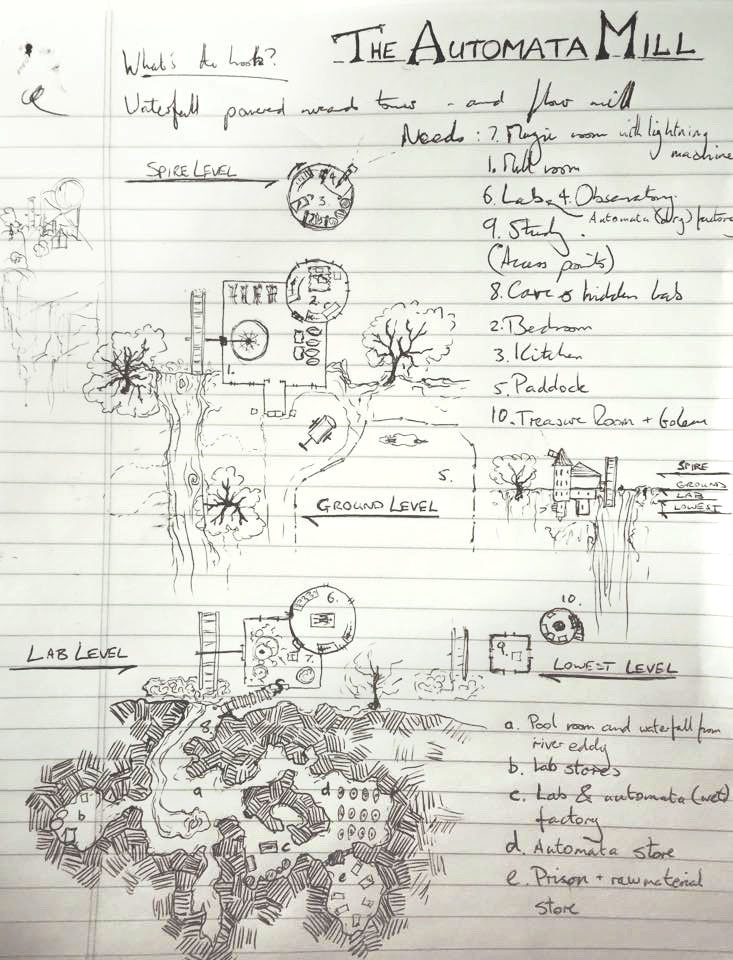 THE AUTOMATA MILL
What's the hook?
Waterfall powered tower - and flour mill
Needs: 7. Magic room with lightning machine
1. Mill room
6. Lab 4. Observatory
Automata (dry) factory
9. Study
(Access points)
8. Cave & hidden lab
2. Bedroom
3. Kitchen
5. Paddock
10. Treasure Room + Golem
SPIRE LEVEL
4.
3.
2.
1.
5.
GROUND LEVEL
SPIRE
GROUND
LAB
LOWEST
LAB LEVEL
6.
7.
8.
9.
10.
LOWEST LEVEL
a
b
c
d
e
a. Pool room and waterfall from
river eddy
b. Lab stores
c. Lab & automata (wet)
factory
d. Automata store
e. Prison + raw material
store